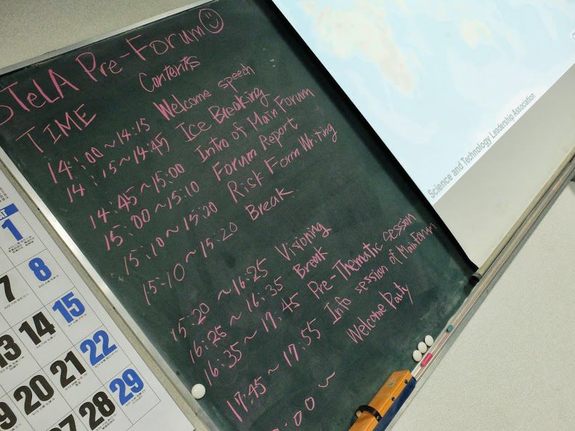 STeLA Pre-Forum
TIME Contents
14:00~14:15 Welcome speech
14:15~14:45 Ice Breaking
14:45~15:00 Intro of Main Forum
15:00~15:10 Forum Report
15:10~15:20 Risk Form Writing
15:10~15:20 Break
15:20~16:25 Visioning
16:25~16:35 Break
16:35~17:45 Pre-Thematic session
17:45~17:55 Info session of Main Forum
:00~ Welcome Party
Science and Technology Leadership Association
1
7 8
13 14 15
19 20 21 22
27 28 29